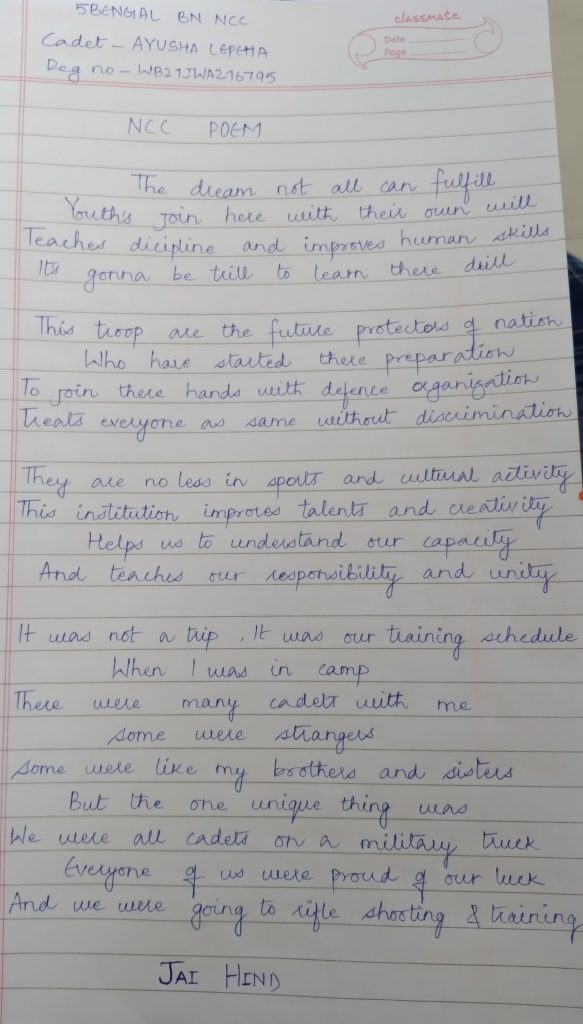 5BENGAL BN NCC
classmate
Cadet - AYUSHA LEPCHA
Date
Page
Reg no - WB21JWA216795
NCC POEM
The dream not all can fulfill
Youth's join here with their own will
Teaches dicipline and improves human skills
It's gonna be trill to learn there drill
This troop are the future protectors of nation
Who have started there preparation
To join there hands with defence organization
Treats everyone as same without discrimination
They are no less in sports and cultural activity
This institution improves talents and creativity
Helps us to understand our capacity
And teaches our responsibility and unity
It was not a trip , It was our training schedule
When I was in camp
There were many cadets with me
Some were strangers
Some were like my brothers and sisters
But the one unique thing was
We were all cadets on a military truck
Everyone of us were proud of our luck
And we were going to rifle shooting & training
JAI HIND